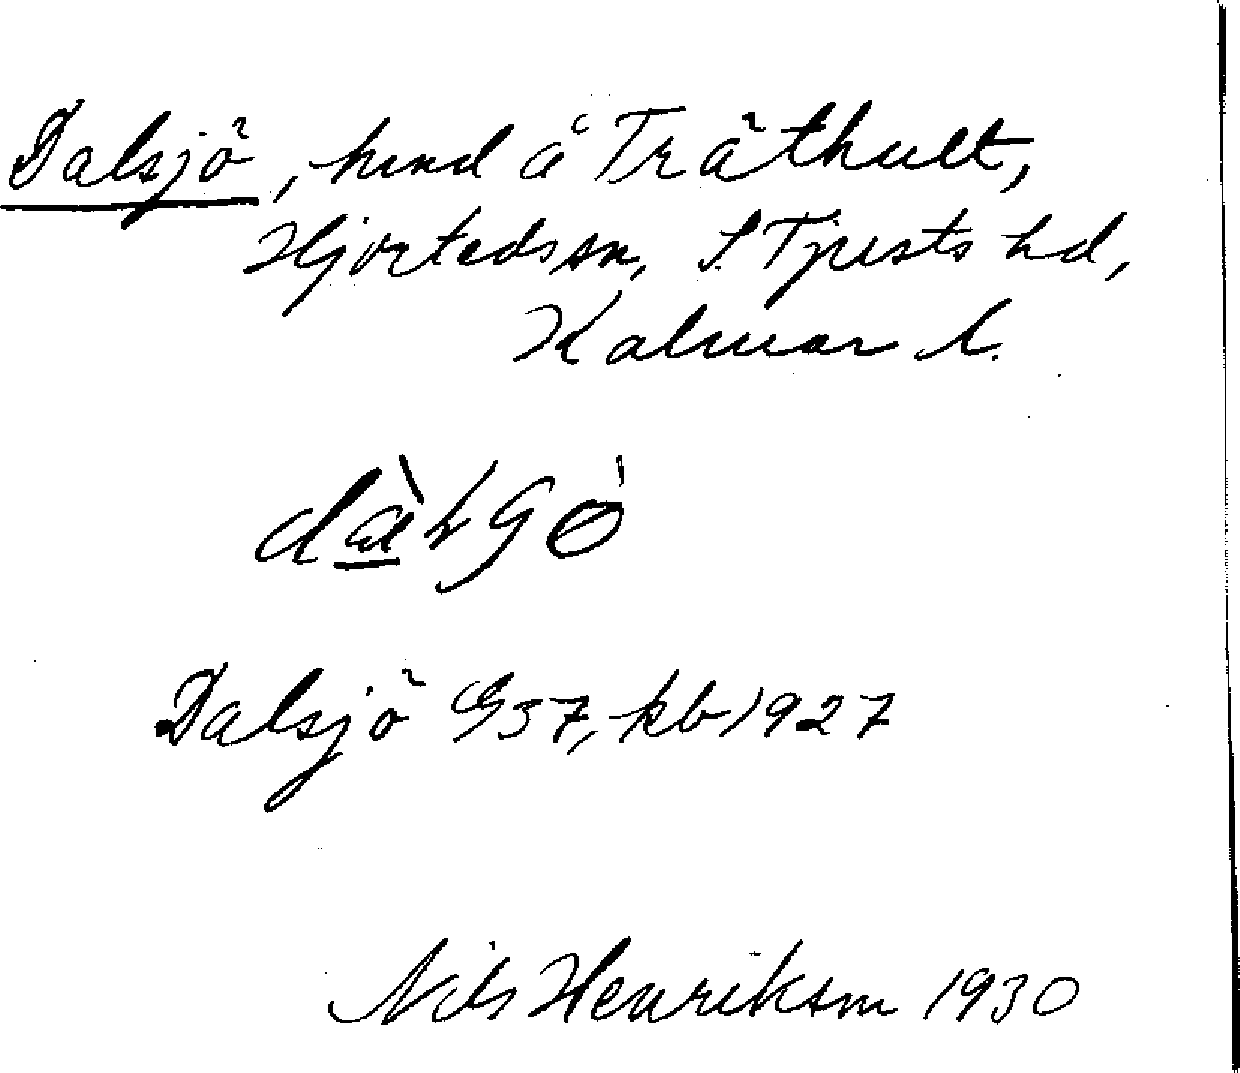 Dalsjö, hmnd å Träthult,
Hjorteds sn, S. Tjusts hd,
Kalmar l.
Dalsjö G57, kb 1927
Nils Henriksson 1930